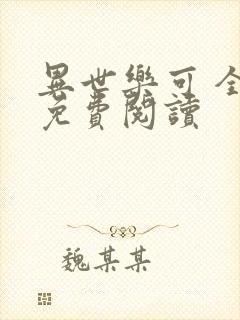 異世樂可 全
免費閱讀
魏某某